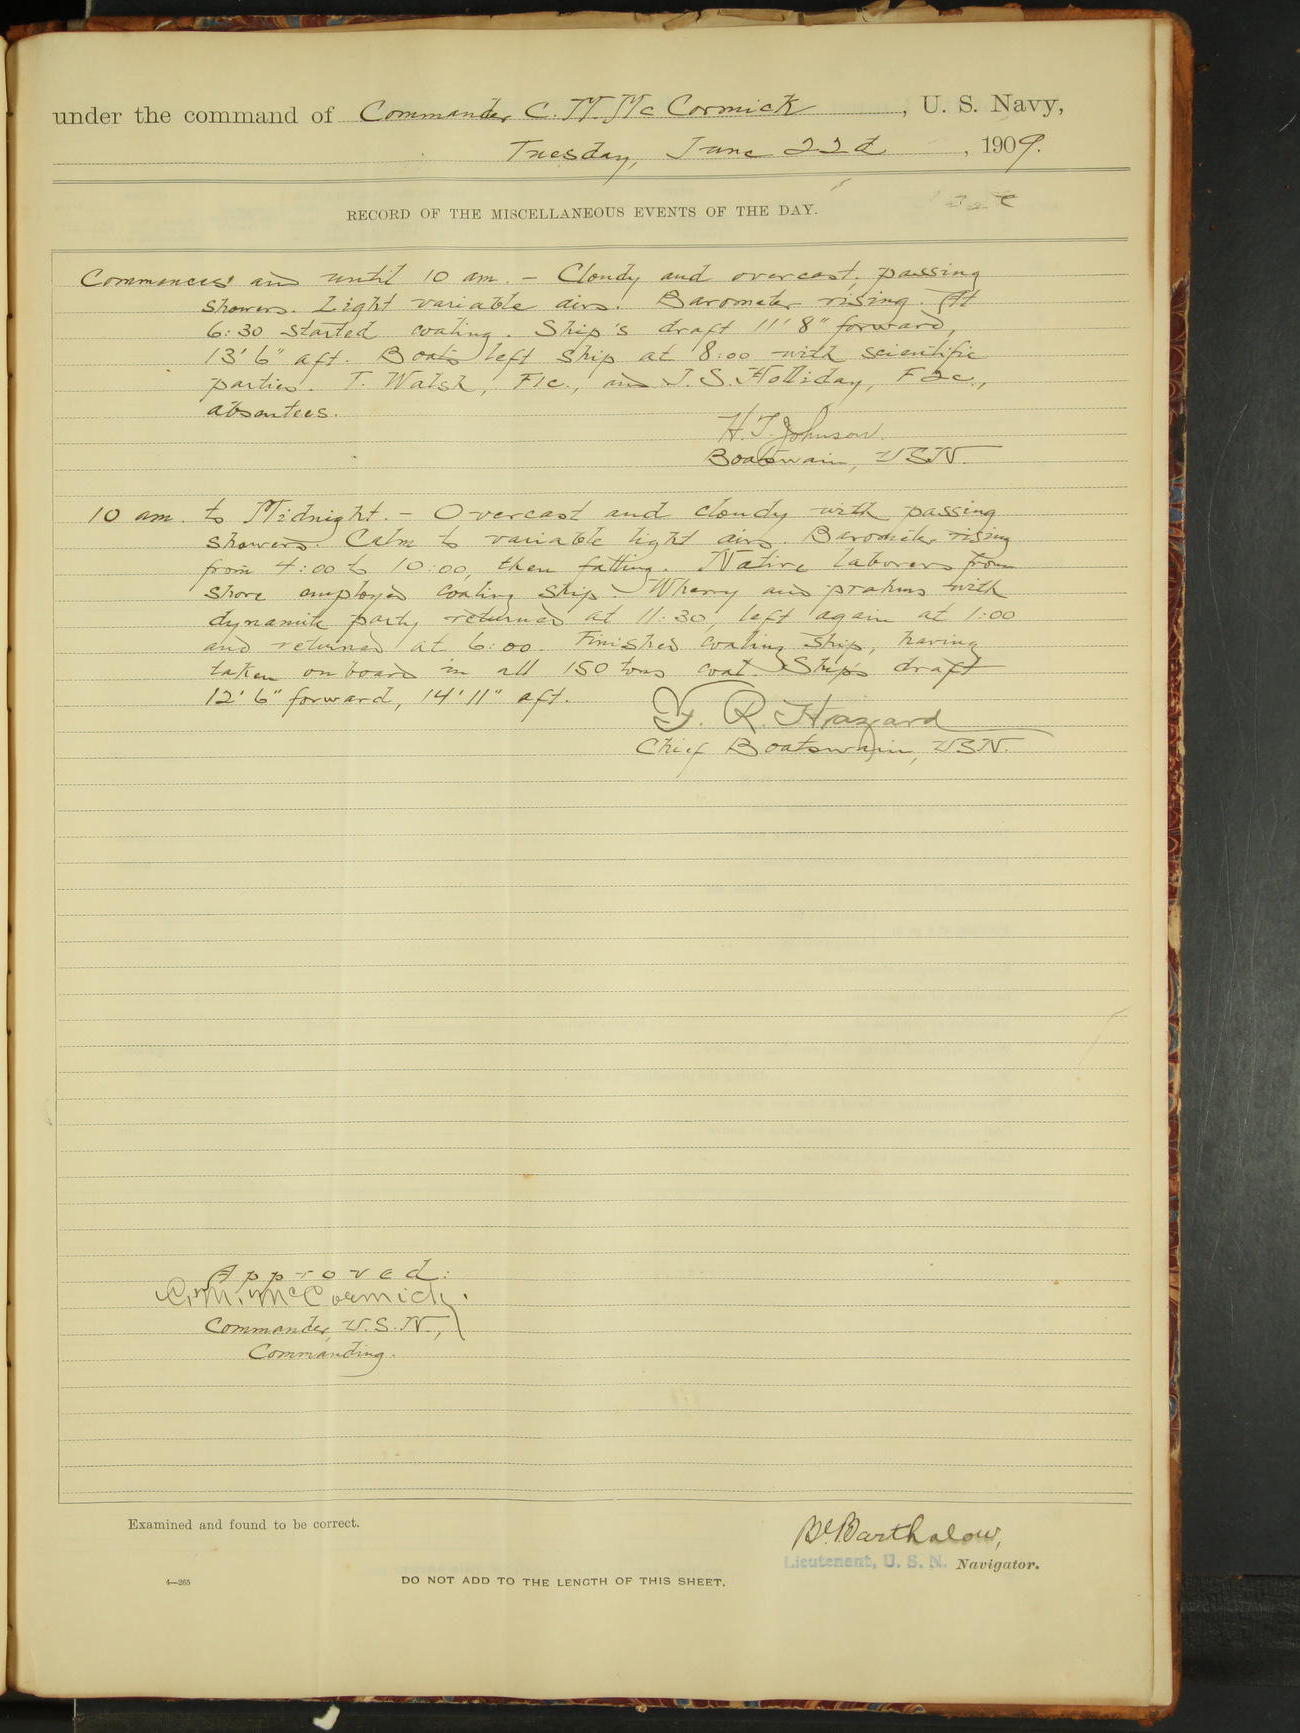 under the command of Commander C. M. McCormick, U. S. Navy,
Tuesday, June 22d, 1909.
RECORD OF THE MISCELLANEOUS EVENTS OF THE DAY.
Commences and until 10 am. – Cloudy and overcast, passing
showers. Light variable airs. Barometer rising. At
6:30 started coaling. Ship's draft 11' 8" forward,
13' 6" aft. Boats left ship at 8:00 with scientific
parties. T. Walsh, F1c., and J. S. Holliday, F2c.,
absentees.
H. T. Johnson.
Boatswain, USN.
10 am. to Midnight. – Overcast and cloudy with passing
showers. Calm to variable light airs. Barometer rising
from 4:00 to 10:00, then falling. Native laborers from
shore employed coaling ship. Wherry and prahus with
dynamite party returned at 11:30, left again at 1:00
and returned at 6:00. Finished coaling ship, having
taken on board in all 150 tons coal. Ship's draft
12' 6" forward, 14' 11" aft.
F. R. Hazard
Chief Boatswain, USN.
Approved:
C. M. McCormick.
Commander, U.S.N.,
Commanding.
Examined and found to be correct.
Barthalow,
Lieutenant, U. S. N. Navigator.
4—265
DO NOT ADD TO THE LENGTH OF THIS SHEET.